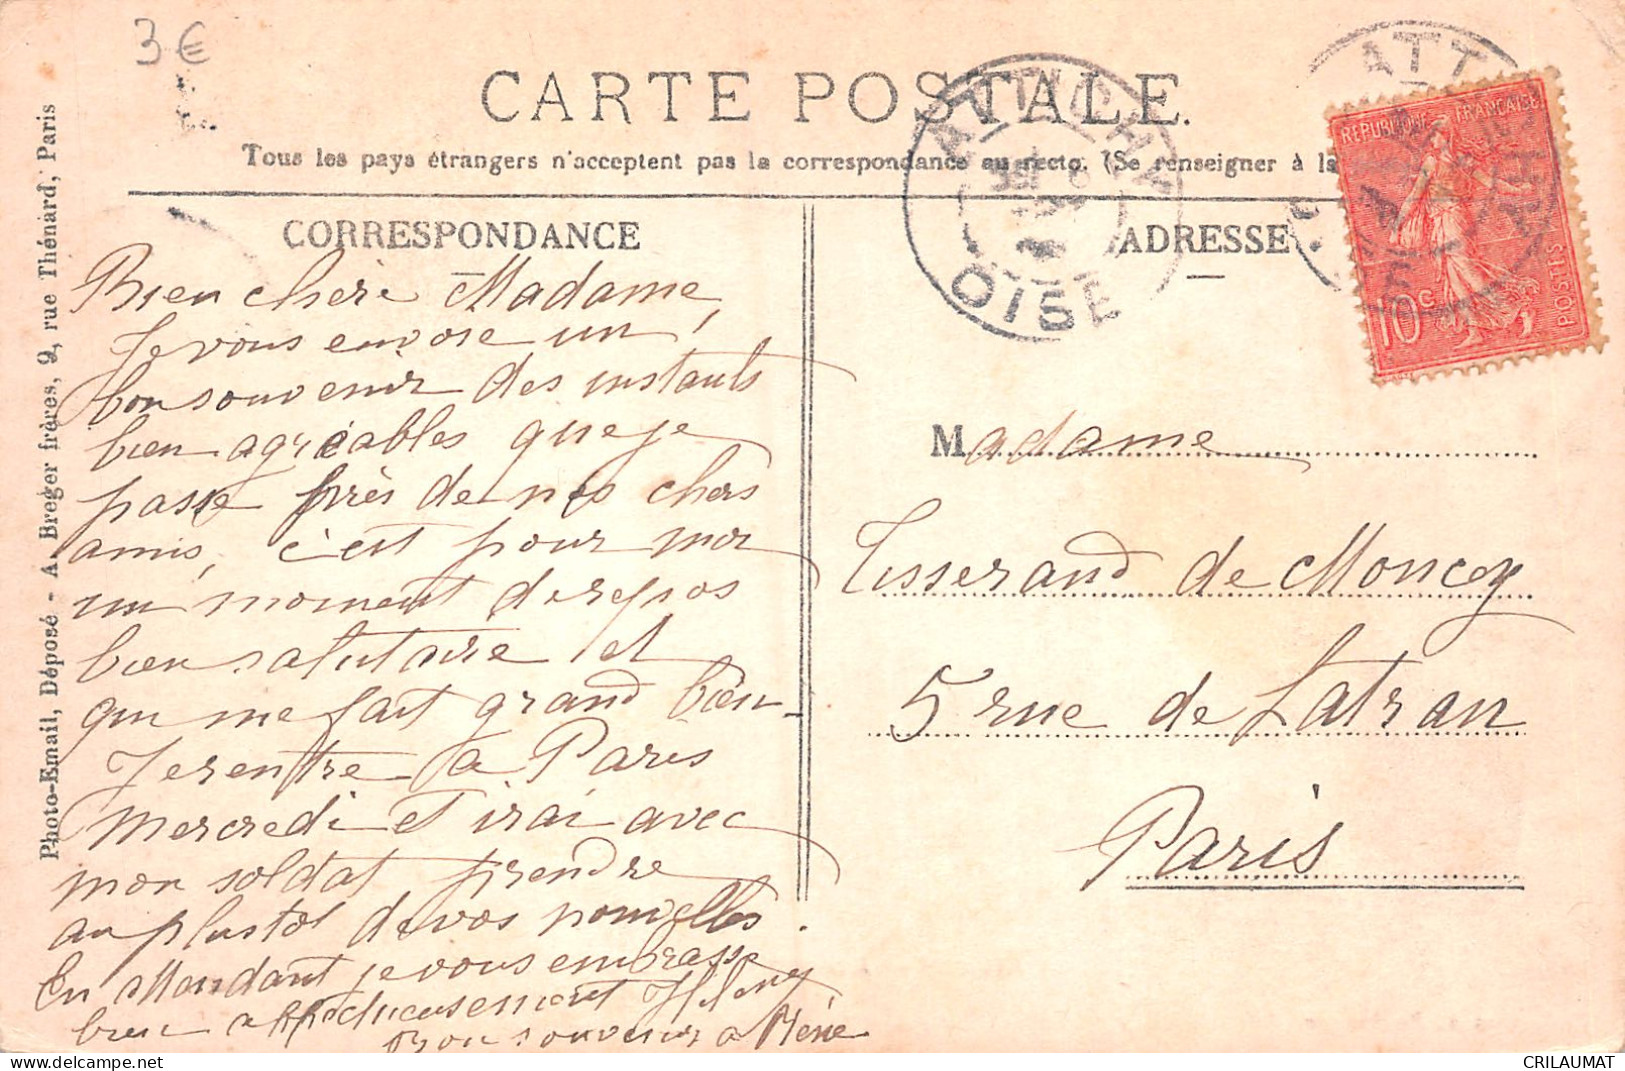 3€
CARTE POSTALE.
Tous les pays étrangers n'acceptent pas la correspondance au recto. (Se renseigner à la
CORRESPONDANCE
ADRESSE
Photo-Email, Déposé - A. Breger frères, 9, rue Thénard, Paris
ATTICHY
OISE
ATTICHY
REPUBLIQUE FRANÇAISE
10c
POSTES
Bien chère Madame,
Je vous envoie un
bon souvenir des instants
bien agréables que je
passe près de nos chers
amis, c'est pour moi
un moment de repos
bien salutaire et
qui me fait grand bien.
Je rentre à Paris
Mercredi et irai avec
mon soldat prendre
au plus tôt de vos nouvelles.
En attendant je vous embrasse
bien affectueusement
Bon souvenir à
Madame
Tisserand de Moncey
5 rue de Latran
Paris
CRILAUMAT